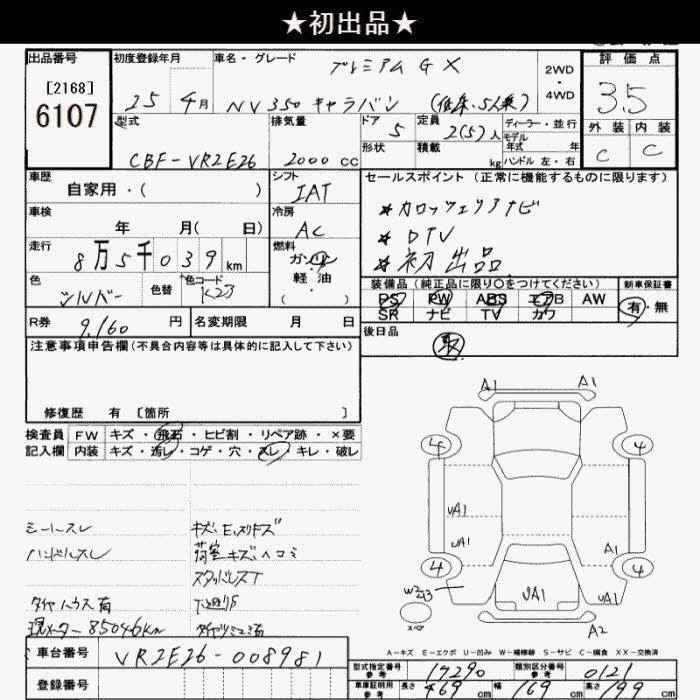 ★初出品★
出品番号
[2168]
6107
初度登録年月
25 年 4月
車名・グレード
プレミアム GX
NV350 キャラバン (低床、5人乗)
2WD
・
4WD
評価点
3.5
外装 内装
C C
型式
CBF-VR2E26
排気量
2000 cc
ドア
5
形状
定員
2(5)人
積載
kg
ディーラー・並行
モデル
年式 年
ハンドル 左・右
車歴
自家用・( )
シフト
IAT
車検
年 月( 日)
冷房
AC
走行
8万5千039km
燃料
ガソリン
軽・油
( )
色
シルバー
色替
色コード
K23
R券
9,160 円
名変期限 月 日
セールスポイント (正常に機能するものに限ります)
★カロッツェリアナビ
★DTV
★初出品
装備品(純正品に限り○をつけてください)
PS PW ABS エアB AW
SR ナビ TV カワ
新車保証書
有・無
後日品
取
注意事項申告欄(不具合内容等は具体的に記入して下さい)
修復歴 有 [箇所 ]
検査員 FW キズ・飛石・ヒビ割・リペア跡・×要
記入欄 内装 キズ・汚レ・コゲ・穴・スレ・キレ・破レ
シートスレ
ハンドルスレ
タイヤハウス有
現メーター85046km
荷室キズヘコミ
スタッドレスT
下廻りS
A1 A1
4 4
UA1
UA1 A1
4 4
W2 UA1 UA1
A2
A-キズ E-エクボ U-凹み W-補修跡 S-サビ C-腐食 XX-交換済
車台番号 VR2E26-008981
登録番号
型式指定番号
参考
17290
類別区分番号
参考
0121
車庫証明用
参考
長さ 469 cm 幅 169 cm 高さ 199 cm